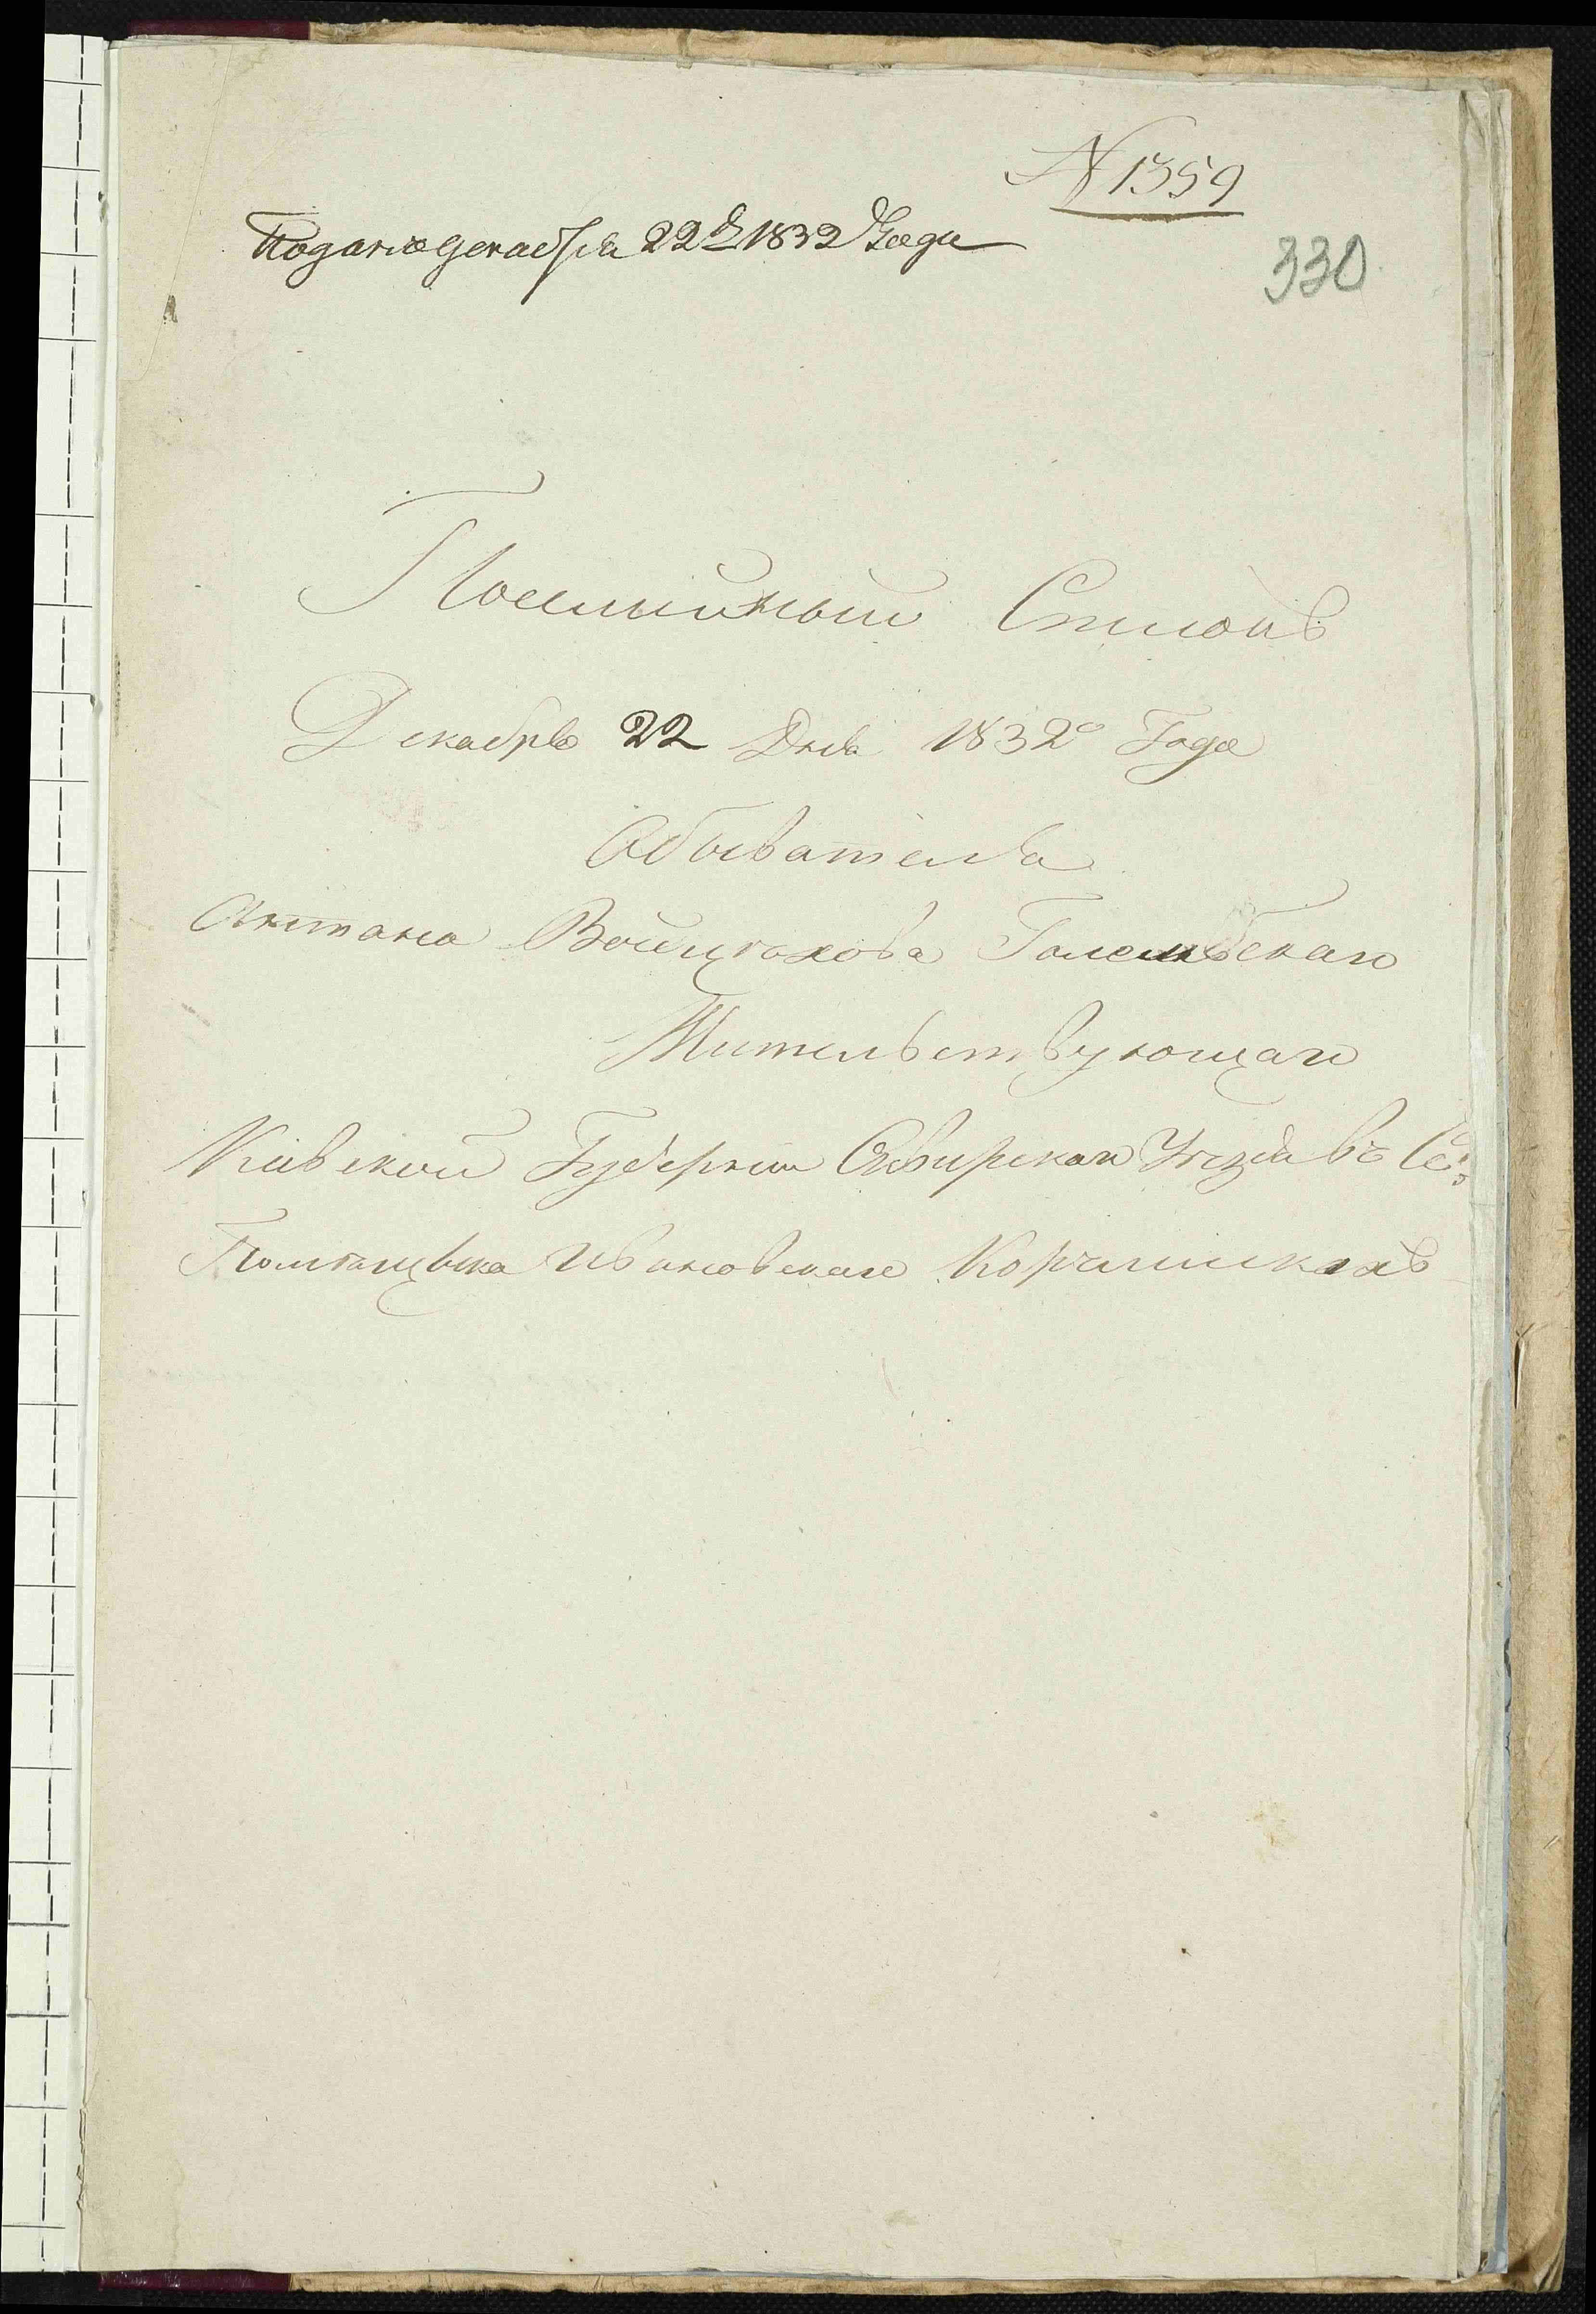 N 1359
Подано Декабря 22 д 1832 Года
330
Посемейный Списокъ
Декабря 22 Дня 1832º Года
Обывателя
Антона Войцехова Голембскаго
Жительствующаго
Кіевской Губерніи Сквирскаго Уезда въ Се:
Помѣщыка Ивановскаго Корчмискахъ